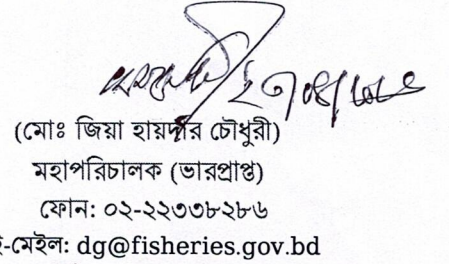 (মোঃ জিয়া হায়দার চৌধুরী)
মহাপরিচালক (ভারপ্রাপ্ত)
ফোন: ০২-২২৩৩৮২৮৬
ই-মেইল: dg@fisheries.gov.bd